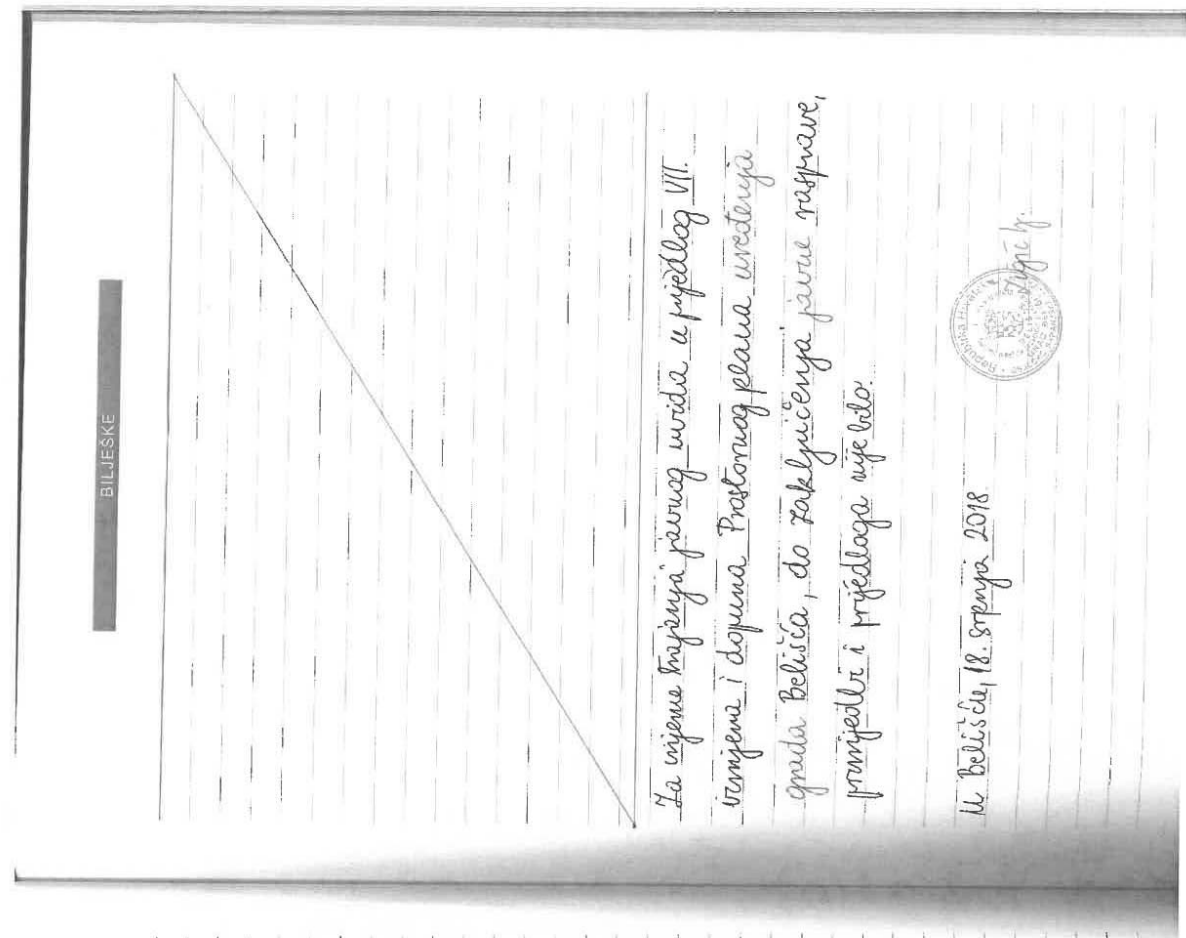 BILJEŠKE
Za vrijeme trajanja javnog uvida u prijedlog VII.
izmjena i dopuna Prostornog plana uređenja
grada Belišća, do zaključenja javne rasprave,
primjedbi i prijedloga nije bilo.
U Belišću, 18. srpnja 2018.
Republika Hrvatska